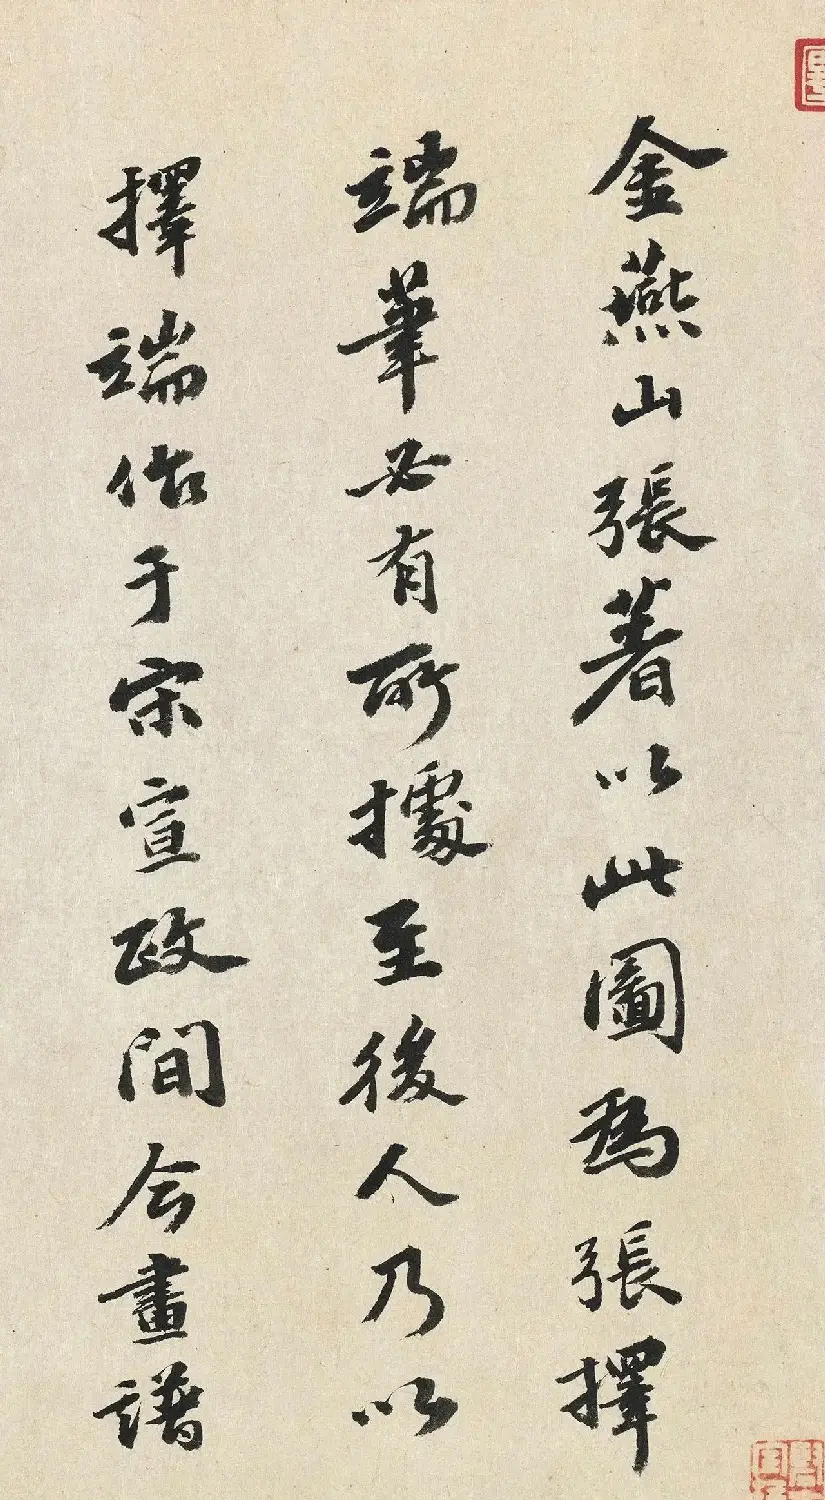 金燕山張著以此圖為張擇
端筆必有所據至後人乃以
擇端作于宋宣政間今畫譜